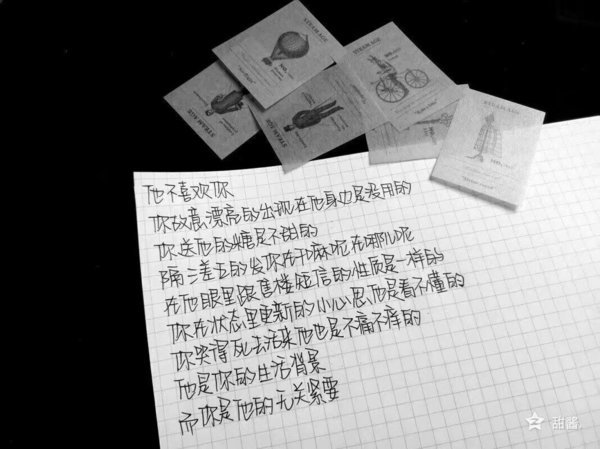 STEAM AGE
STEAM AGE
STEAM AGE
STEAM AGE
STEAM AGE
他不喜欢你
你故意漂亮的出现在他身边是没用的
你送他的糖是不甜的
隔三差五的发你在干嘛呢在哪儿呢
在他眼里跟售楼短信的性质是一样的
你在状态里更新的小心思他是看不懂的
你哭得死去活来他也是不痛不痒的
他是你的生活背景
而你是他的无关紧要
甜酱